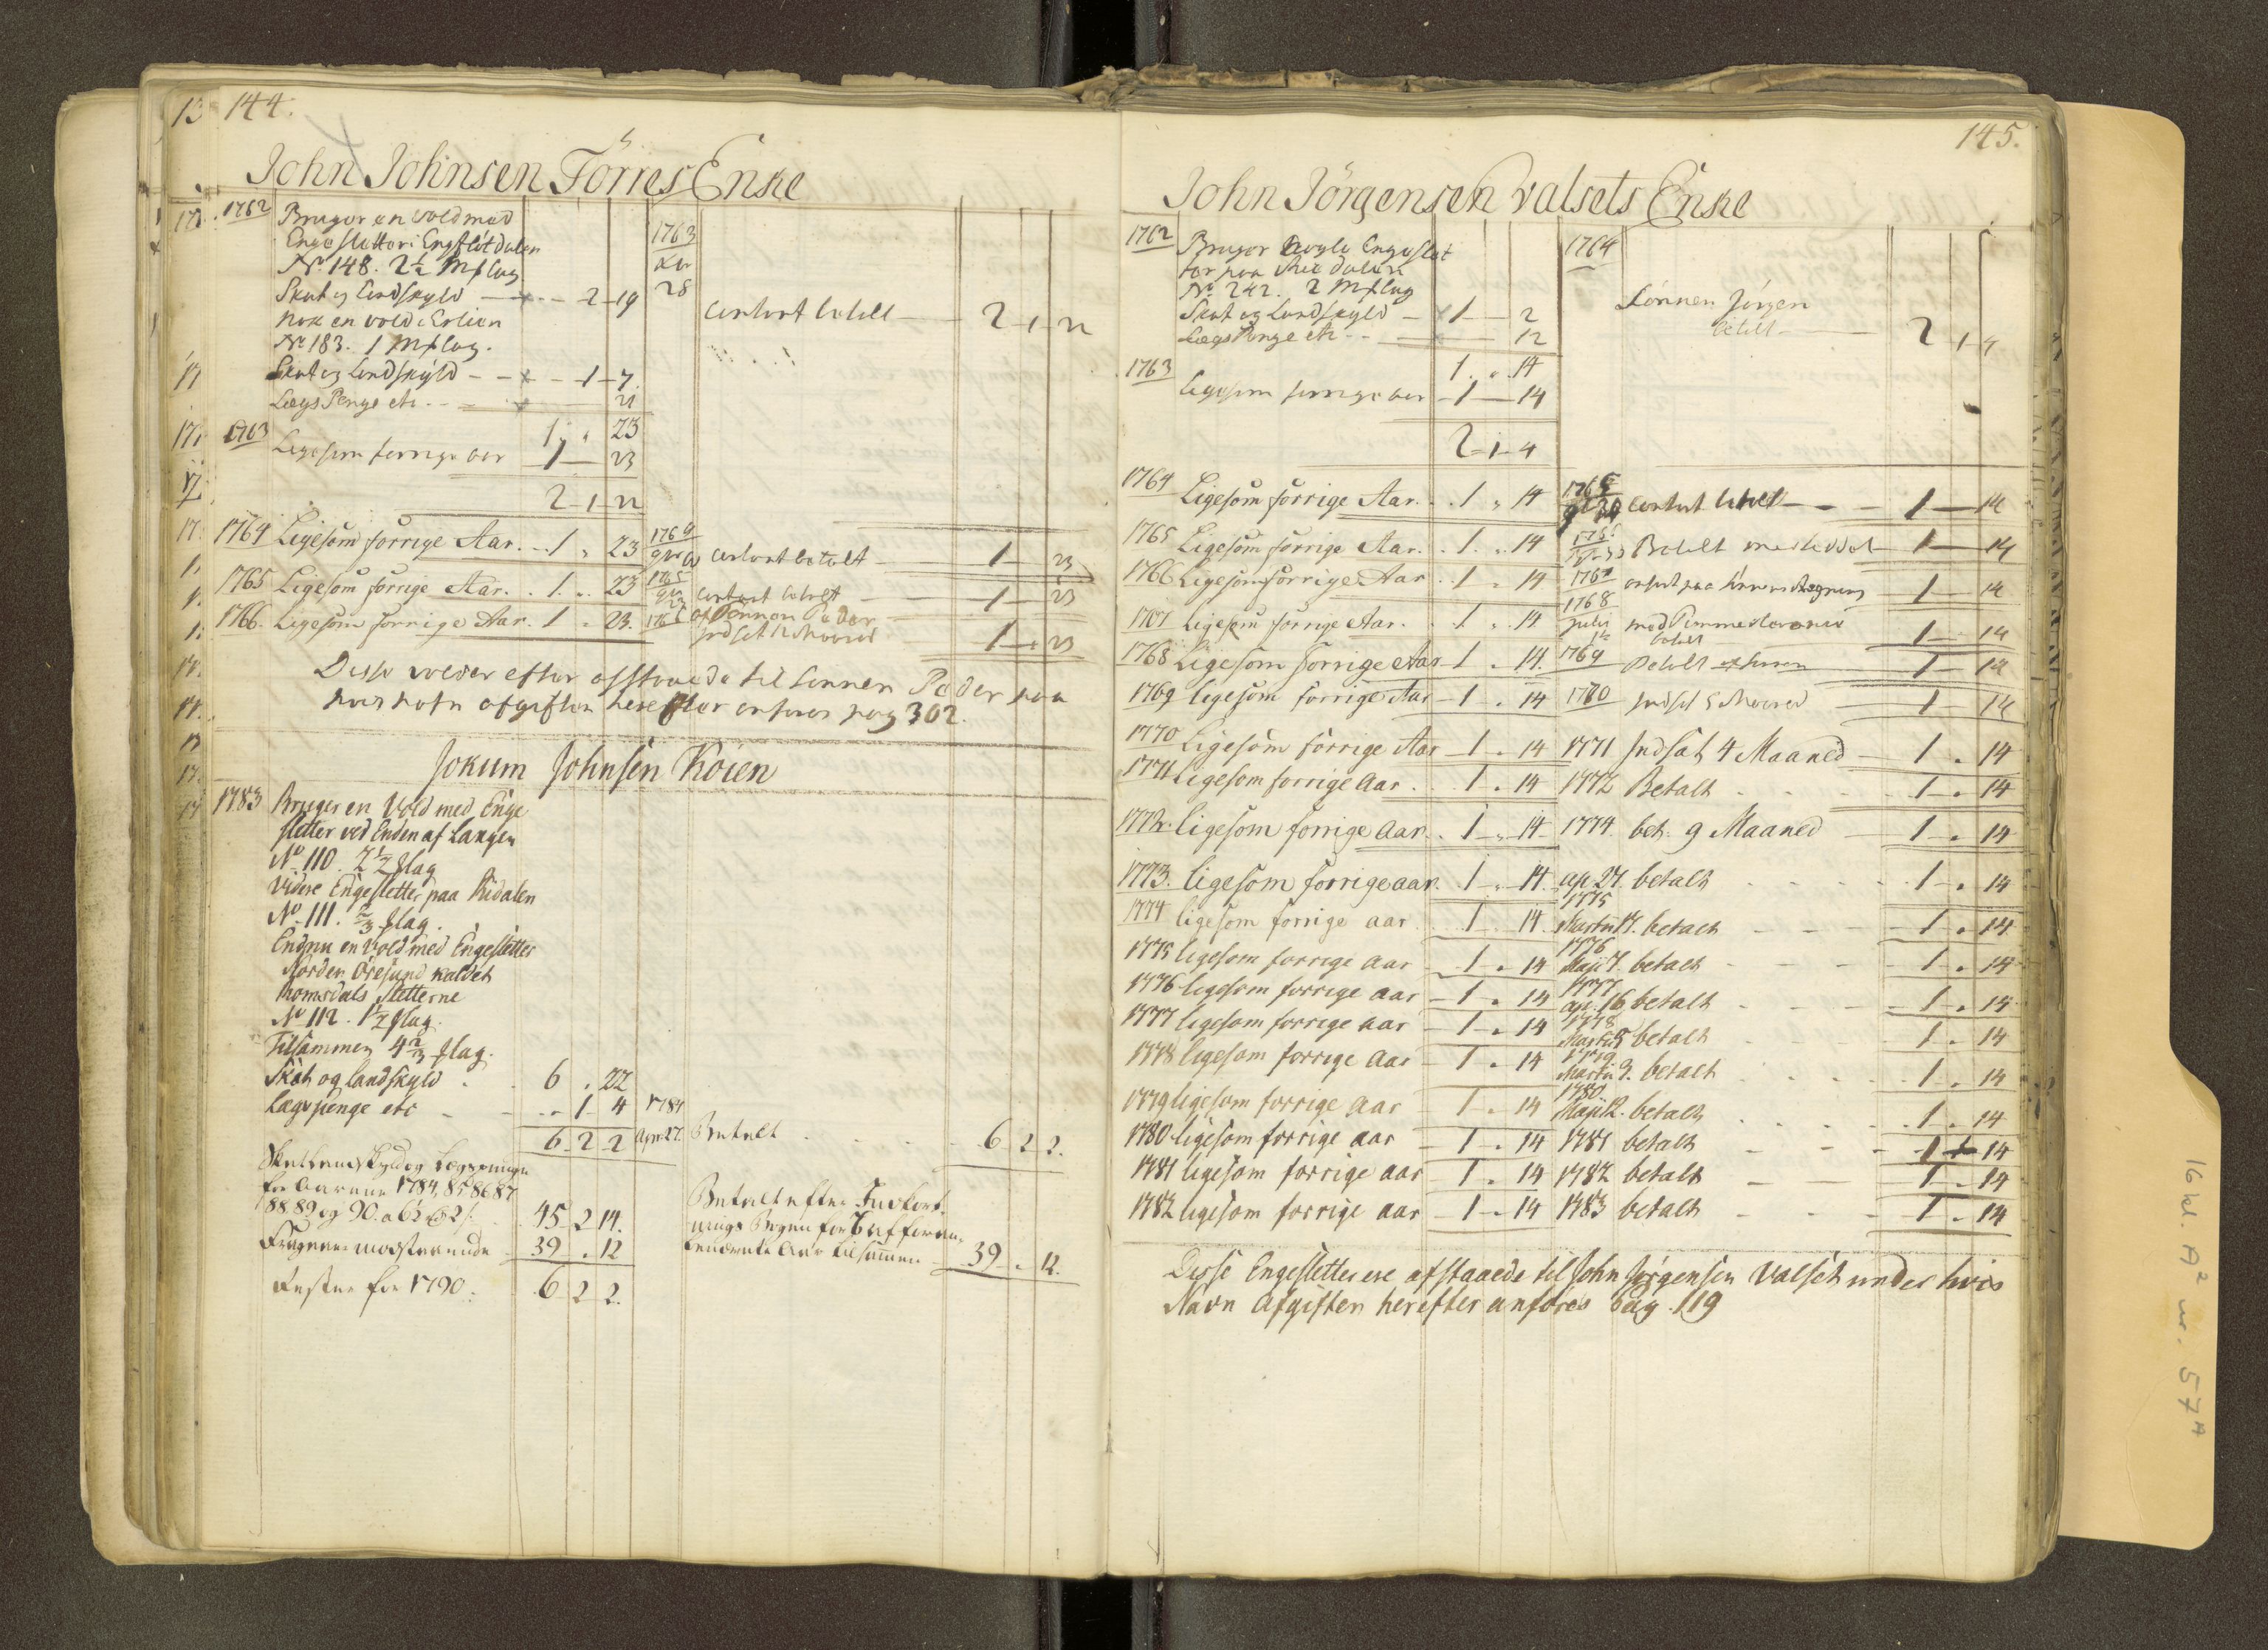 144.
John Johnsen Törres Enke
1762 Bruger en vold med
Enge sletter i Engslötdalen
No. 148. 2½ Mſlag
Skat og Landskyld - - 2 - 19
Nok en vold i Erlien
No. 183. 1 Mſlag.
Skat og Landskyld - - - 1 - 7.
Lægs Penge etc. - - 21
1 " " 23
1763 Ligesom forrige aar 1 - 23
2 - 1 - 22
1763
28 contant betalt - 2 - 1 - 22
1764 Ligesom forrige Aar. - 1 " 23
1764 contant betalt - 1 - 23
1765 Ligesom forrige Aar. . 1. " 23
1765 contant betalt - 1 - 23
1766. Ligesom forrige Aar. 1 " 23.
1766 af Sönnen Peder
1 - " 23
Disse volder efter afstaaede til Sönnen Peder paa
hvis nafn afgiften herefter anföres pag 302.
Jokum Johnsen Köien
1783 Bruger en Vold med Enge
sletter ved Enden af Langen
No. 110. 2½ ſlag
Videre Engesletter paa Riidalen
No. 111. ⅔ ſlag.
Endnu en Vold med Engesletter
Norden Öresund kaldet
Romsdals Sletterne
No 112. 1½ ſlag.
Tilsammen 4⅔ ſlag.
Skat og landskyld . . 6 . 22
Lægspenge etc - - . . 1 - 4
6 - 2 - 2
1784
Apr: 27. Betalt . . . . 6 2 2.
Skat Landskyld og Lægspenge
for Aarene 1784, 85 86 87
88 89 og 90. a 6 2 2 . 45 2 14.
39 . 12
Rester for 1790. 6 2 2.
Betalt efter Indkort-
nings Bogen for 6 af foran-
tilsammen - 39 . 12.
145.
John Jörgensen Valsets Enke
1762 Bruger Nogle Engeslet
ter paa Riidalen
No. 242. 2 Mſlag
Skat og Landskyld - 1 - 2
Lægs Penge etc - - 12
1. " . 14
1763
Ligesom forrige aar - 1 - 14
2 - 1 - 4
1764
Sönnen Jörgen
betalt - 2 1 4
1764 Ligesom forrige Aar. . 1 " 14
contant betalt - - 1 - 14
1765 Ligesom forrige Aar. . 1. " 14
Betalt 1 - 14
1766 Ligesom forrige Aar . 1 " 14
1767 1 - 14
1767 Ligesom forrige Aar. . 1 " 14
1768
Julii med Tömmerleverance
betalt 1 - 14
1768 Ligesom forrige Aar 1 " 14.
1769 Betalt 1 - 14
1769 ligesom forrige Aar - 1 . 14
1770 1 - 14
1770 Ligesom forrige Aar - 1 . 14
1771 Indsat 4 Maaned - 1 . 14
1771 Ligesom forrige Aar . . 1 . 14
1772 Betalt . . . . 1 . 14
1772. ligesom forrige Aar. . 1 " 14
1774. bet: 9 Maaned - 1 . 14
1773. ligesom forrige aar. 1 . 14.
ap. 27. betalt . . . . 1 . 14
1774 ligesom forrige aar 1 . 14.
1775
Martii 17. betalt - - - 1 . 14
1775 ligesom forrige aar - 1 . 14
1776
Maji 7. betalt - - - 1 . 14
1776 ligesom forrige aar - 1 . 14
1777
ap: 16 betalt - - - 1 . 14
1777 ligesom forrige aar - 1 . 14
1778
betalt - - - 1 . 14
1778 ligesom forrige aar - 1 . 14
1779
Martii 9. betalt . . . 1 . 14
1779 ligesom forrige aar - 1 . 14
1780
Maji 12. betalt . . . 1 . 14
1780 ligesom forrige aar - 1 . 14
1781 betalt - - - 1 14
1781 ligesom forrige aar - 1 . 14
1782 betalt - - 1 . 14
1782 ligesom forrige aar - 1 . 14
1783 betalt - - - 1 . 14
Disse Engesletter ere afstaaede til John Jörgensen Valset under hvis
Navn Afgiften herefter anföres Pag. 119
16 kl. A² nr. 57A